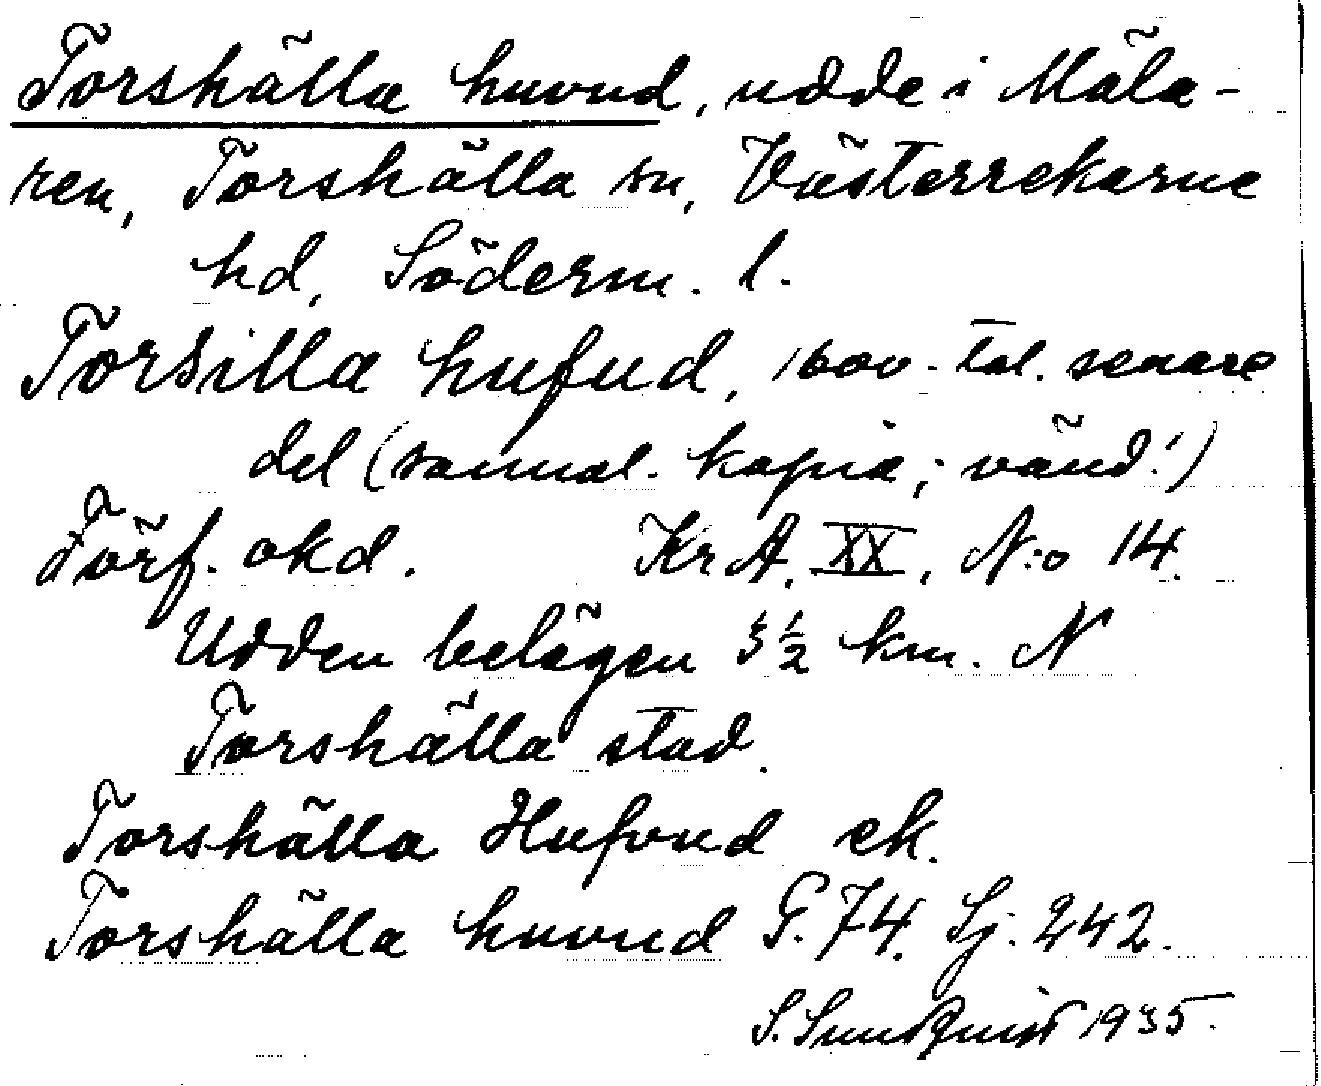 Torshälla huvud, udde i Mäla-
ren, Torshälla sn, Västerrekarne
hd, Söderm. l.
Torsilla hufud, 1600-tal. senare
del (samal. kopia; vänd!)
Förf. okd. Kr A. XX, N:o 14.
Udden belägen 5½ km. N
Torshälla stad.
Torshälla Hufvud ek.
Torshälla huvud G. 74. Sj. 242.
S. Sundquist 1935.